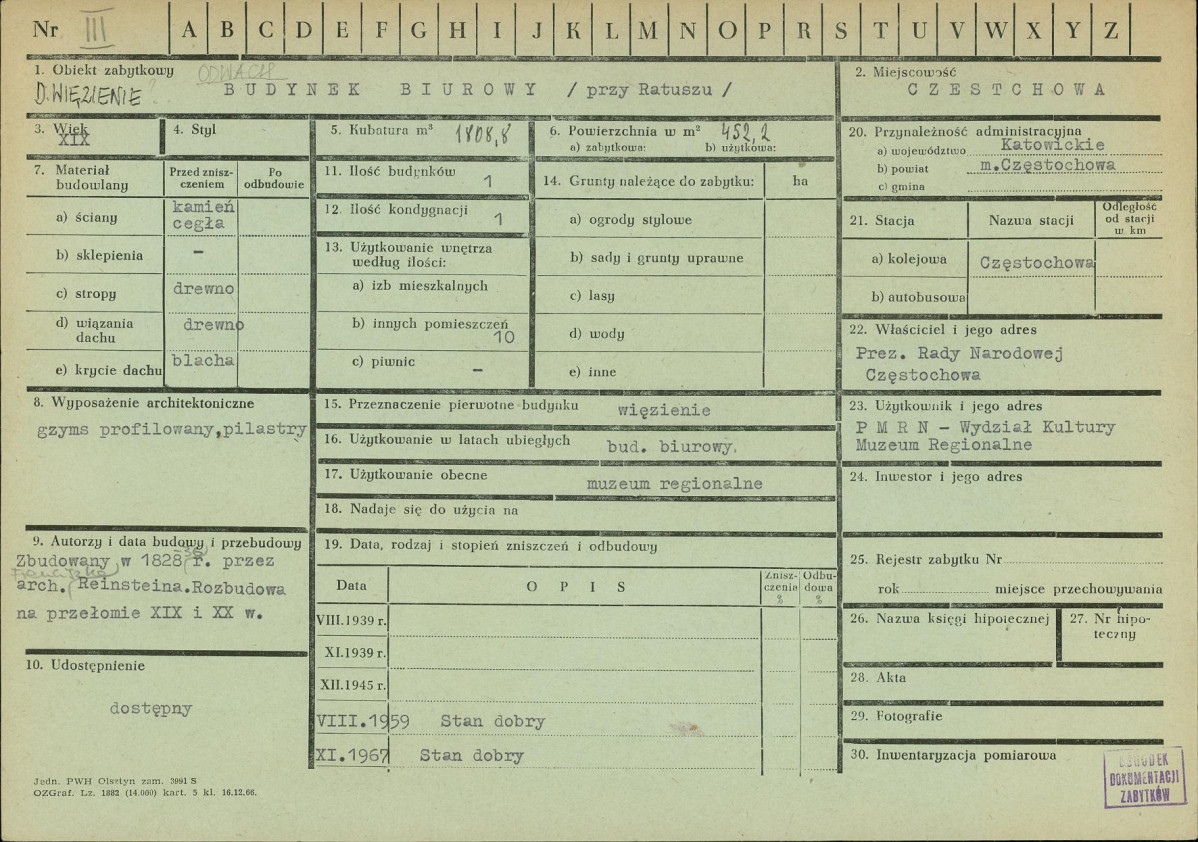 Nr III A B C D E F G H I J K L M N O P R S T U V W X Y Z
1. Obiekt zabytkowy
ODWACH
D. WIĘZIENIE
BUDYNEK BIUROWY / przy Ratuszu /
2. Miejscowość
CZESTCHOWA
3. Wiek
XIX
4. Styl
5. Kubatura m³ 1808,8
6. Powierzchnia w m² 452,2
a) zabytkowa: b) użytkowa:
20. Przynależność administracyjna
a) województwo Katowickie
b) powiat m.Częstochowa
c) gmina
7. Materiał budowlany
Przed znisz-
czeniem
Po
odbudowie
a) ściany kamień
cegła
b) sklepienia –
c) stropy drewno
d) wiązania
dachu drewno
e) krycie dachu blacha
11. Ilość budynków 1
12. Ilość kondygnacji 1
13. Użytkowanie wnętrza
według ilości:
a) izb mieszkalnych
b) innych pomieszczeń
10
c) piwnic –
14. Grunty należące do zabytku: ha
a) ogrody stylowe
b) sady i grunty uprawne
c) lasy
d) wody
e) inne
21. Stacja Nazwa stacji
Odległość
od stacji
w km
a) kolejowa Częstochowa
b) autobusowa
22. Właściciel i jego adres
Prez. Rady Narodowej
Częstochowa
8. Wyposażenie architektoniczne
gzyms profilowany,pilastry
15. Przeznaczenie pierwotne budynku więzienie
16. Użytkowanie w latach ubiegłych bud. biurowy.
17. Użytkowanie obecne muzeum regionalne
18. Nadaje się do użycia na
23. Użytkownik i jego adres
P M R N – Wydział Kultury
Muzeum Regionalne
24. Inwestor i jego adres
9. Autorzy i data budowy i przebudowy
Zbudowany w 1828 r. przez
Franciszka
arch. Reinsteina.Rozbudowa
na przełomie XIX i XX w.
10. Udostępnienie
dostępny
19. Data, rodzaj i stopień zniszczeń i odbudowy
Data O P I S
Znisz-
czenia
%
Odbu-
dowa
%
VIII.1939 r.
XI.1939 r.
XII.1945 r.
VIII.1959 Stan dobry
XI.1967 Stan dobry
25. Rejestr zabytku Nr
rok miejsce przechowywania
26. Nazwa księgi hipotecznej
27. Nr hipo-
teczny
28. Akta
29. Fotografie
30. Inwentaryzacja pomiarowa
OŚRODEK
DOKUMENTACJI
ZABYTKÓW
Jedn. PWH Olsztyn zam. 3991 S
OZGraf. Lz. 1882 (14.000) kart. 5 kl. 16.12.66.